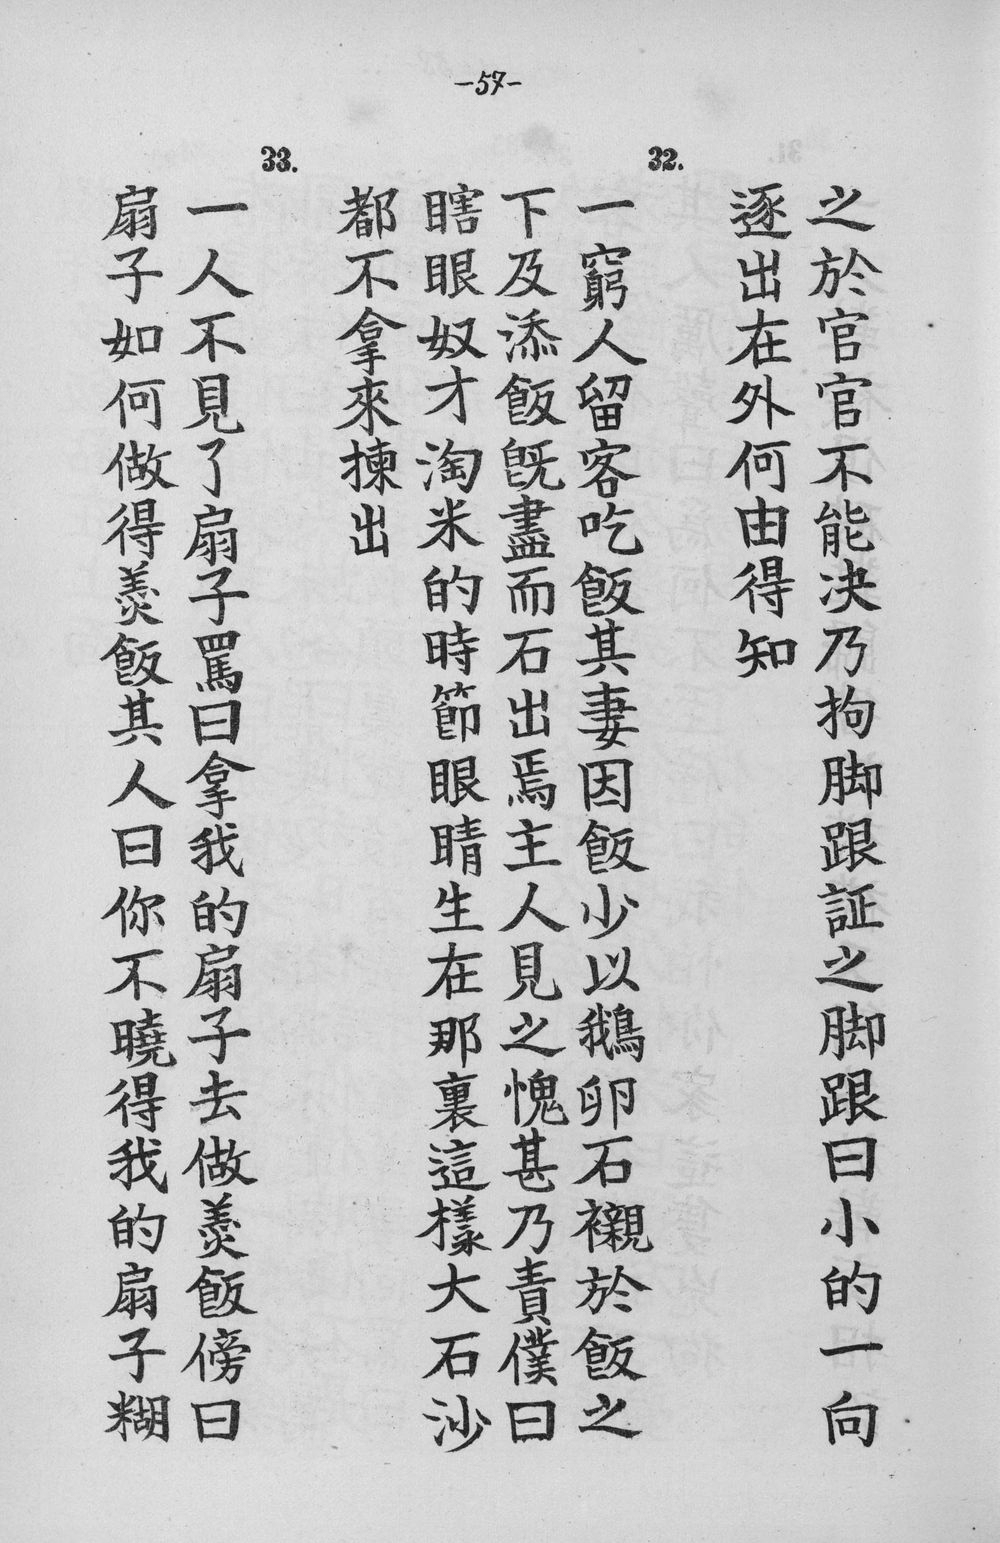 -57-
之於官官不能决乃拘脚跟証之脚跟曰小的一向
逐出在外何由得知
32.
一窮人留客吃飯其妻因飯少以鵝卵石襯於飯之
下及添飯旣盡而石出焉主人見之愧甚乃責僕曰
瞎眼奴才淘米的時節眼睛生在那裏這樣大石沙
都不拿來揀出
33.
一人不見了扇子罵曰拿我的扇子去做羹飯傍曰
扇子如何做得羹飯其人曰你不曉得我的扇子糊